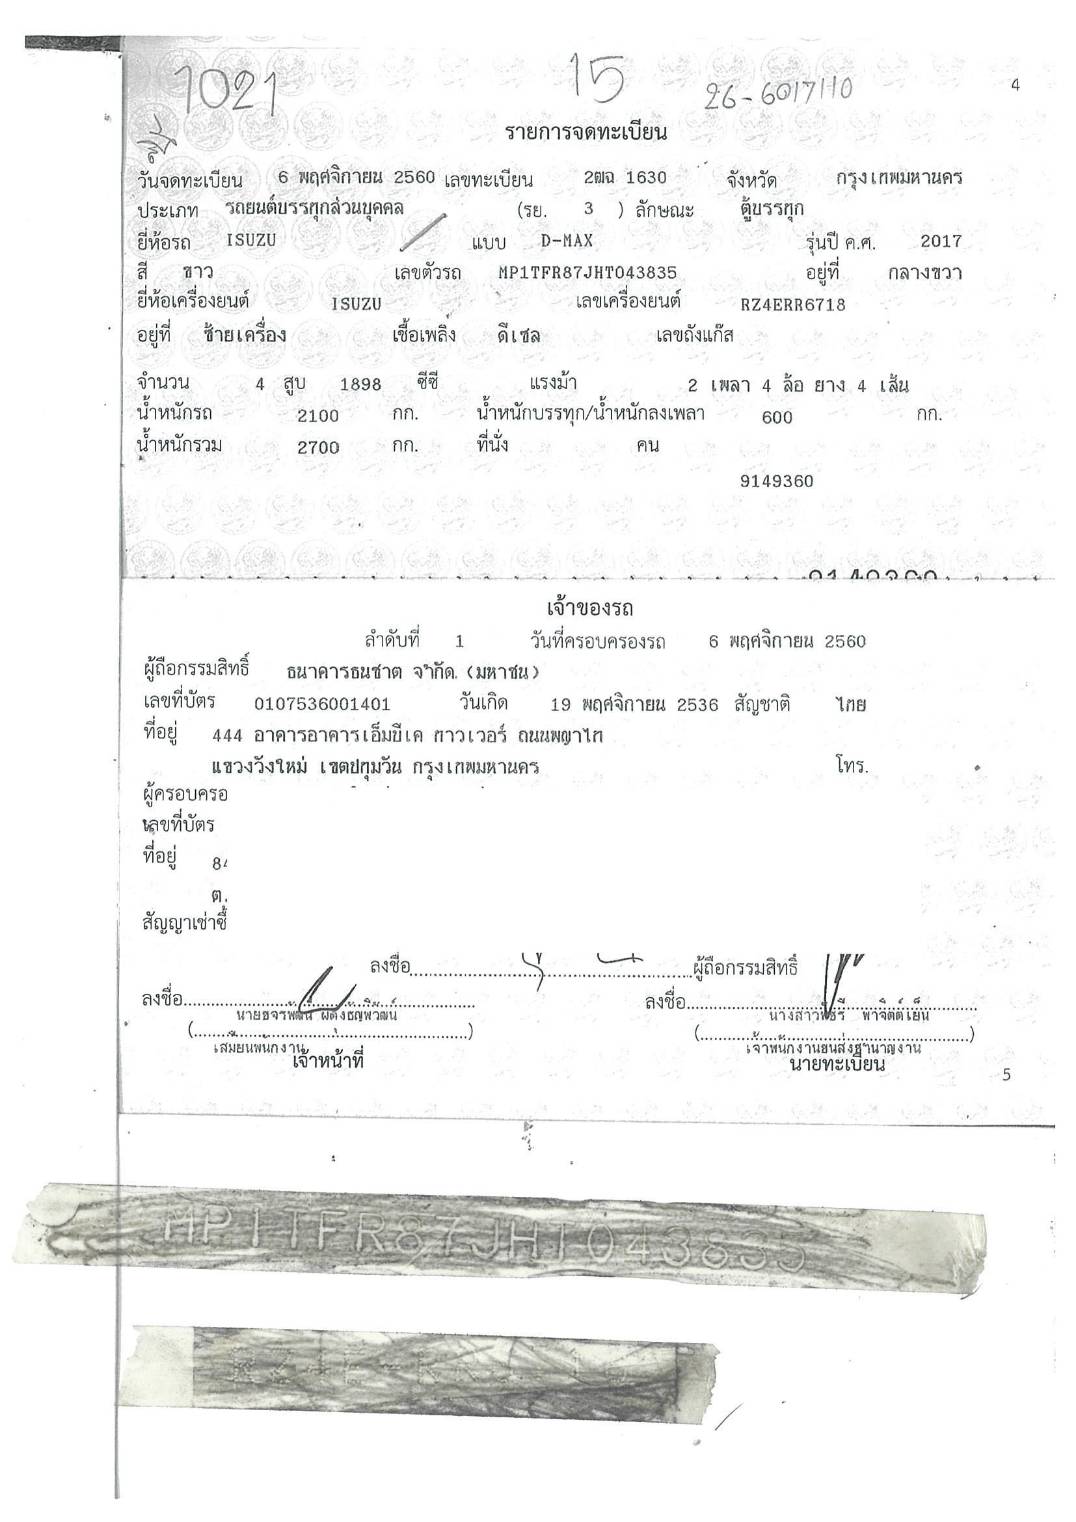 1021 15 26-6017110 4
รายการจดทะเบียน
วันจดทะเบียน 6 พฤศจิกายน 2560 เลขทะเบียน 2ฒฉ 1630 จังหวัด กรุงเทพมหานคร
ประเภท รถยนต์บรรทุกส่วนบุคคล (รย. 3 ) ลักษณะ ตู้บรรทุก
ยี่ห้อรถ ISUZU แบบ D-MAX รุ่นปี ค.ศ. 2017
สี ขาว เลขตัวรถ MP1TFR87JHT043835 อยู่ที่ กลางขวา
ยี่ห้อเครื่องยนต์ ISUZU เลขเครื่องยนต์ RZ4ERR6718
อยู่ที่ ซ้ายเครื่อง เชื้อเพลิง ดีเซล เลขถังแก๊ส
จำนวน 4 สูบ 1898 ซีซี แรงม้า 2 เพลา 4 ล้อ ยาง 4 เส้น
น้ำหนักรถ 2100 กก. น้ำหนักบรรทุก/น้ำหนักลงเพลา 600 กก.
น้ำหนักรวม 2700 กก. ที่นั่ง คน
9149360
เจ้าของรถ
ลำดับที่ 1 วันที่ครอบครองรถ 6 พฤศจิกายน 2560
ผู้ถือกรรมสิทธิ์ ธนาคารธนชาต จำกัด (มหาชน)
เลขที่บัตร 0107536001401 วันเกิด 19 พฤศจิกายน 2536 สัญชาติ ไทย
ที่อยู่ 444 อาคารอาคารเอ็มบีเค ทาวเวอร์ ถนนพญาไท
แขวงวังใหม่ เขตปทุมวัน กรุงเทพมหานคร โทร.
ผู้ครอบครอ
เลขที่บัตร
ที่อยู่ 84
ต.
สัญญาเช่าซื้
ลงชื่อ ผู้ถือกรรมสิทธิ์
ลงชื่อ ลงชื่อ
เจ้าหน้าที่ เจ้าพนักงานขนส่งชำนาญงาน
นายทะเบียน
5
MP1TFR87JHT043835